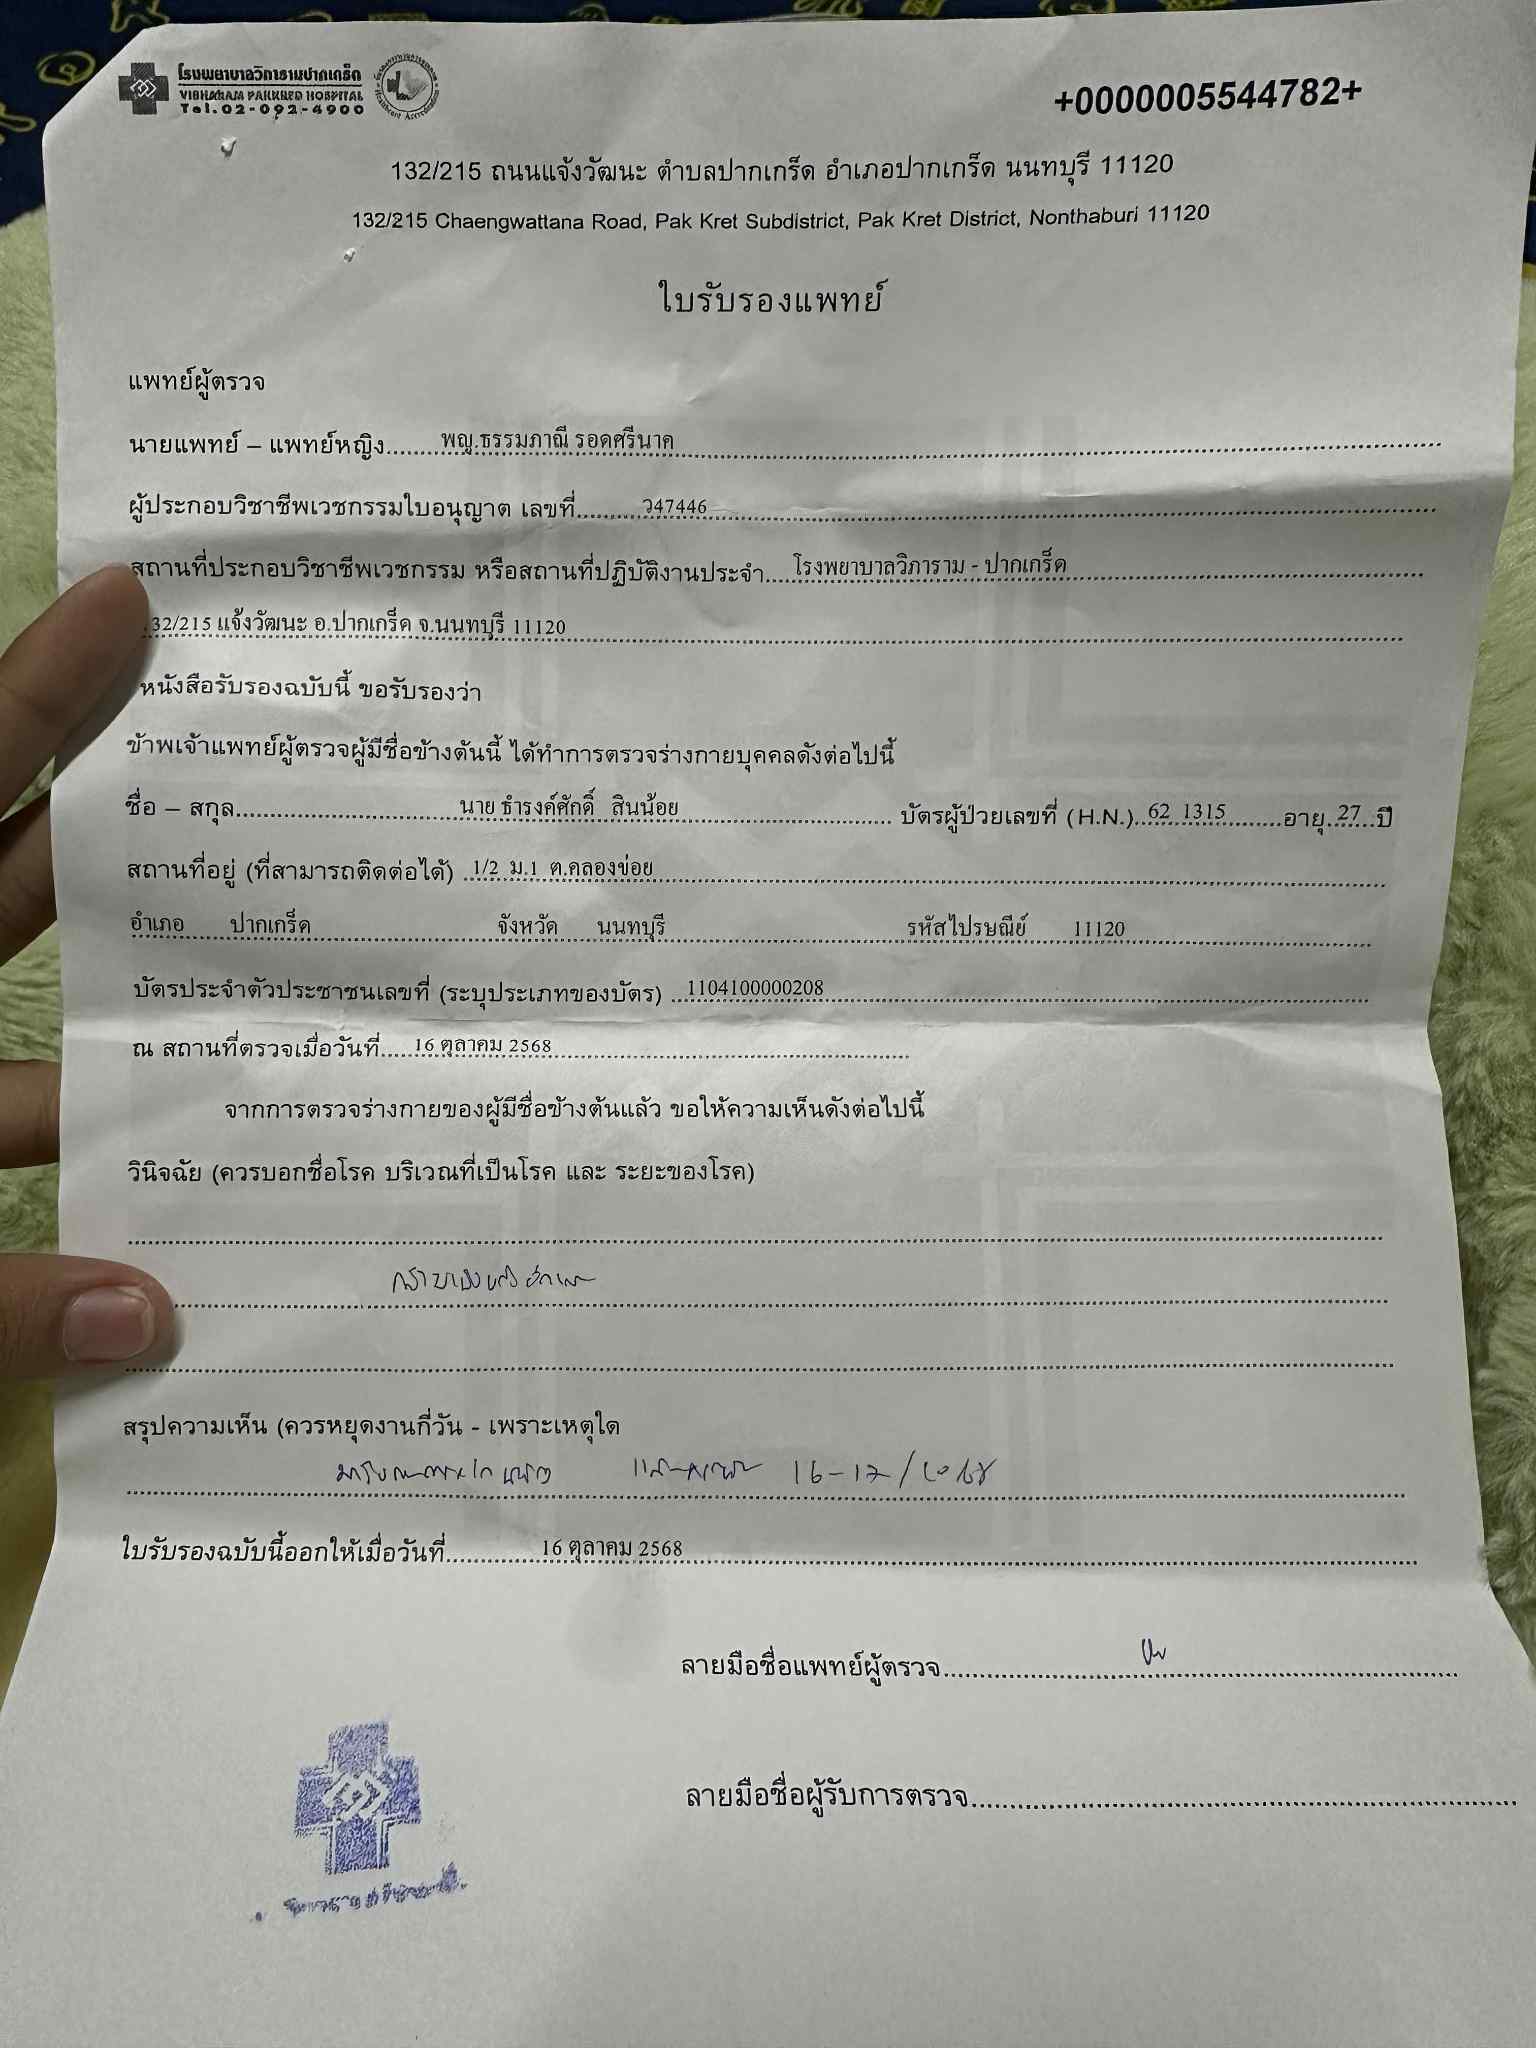 โรงพยาบาลวิภารามปากเกร็ด
VIBHARAM PAKKRED HOSPITAL
Tel.02-092-4900
+0000005544782+
132/215 ถนนแจ้งวัฒนะ ตำบลปากเกร็ด อำเภอปากเกร็ด นนทบุรี 11120
132/215 Chaengwattana Road, Pak Kret Subdistrict, Pak Kret District, Nonthaburi 11120
ใบรับรองแพทย์
แพทย์ผู้ตรวจ
นายแพทย์ – แพทย์หญิง พญ.ธรรมภาณี รอดศรีนาค
ผู้ประกอบวิชาชีพเวชกรรมใบอนุญาต เลขที่ ว47446
สถานที่ประกอบวิชาชีพเวชกรรม หรือสถานที่ปฏิบัติงานประจำ โรงพยาบาลวิภาราม - ปากเกร็ด
132/215 แจ้งวัฒนะ อ.ปากเกร็ด จ.นนทบุรี 11120
หนังสือรับรองฉบับนี้ ขอรับรองว่า
ข้าพเจ้าแพทย์ผู้ตรวจผู้มีชื่อข้างต้นนี้ ได้ทำการตรวจร่างกายบุคคลดังต่อไปนี้
ชื่อ – สกุล นาย ธำรงค์ศักดิ์ สินน้อย บัตรผู้ป่วยเลขที่ (H.N.) 62 1315 อายุ 27 ปี
สถานที่อยู่ (ที่สามารถติดต่อได้) 1/2 ม.1 ต.คลองข่อย
อำเภอ ปากเกร็ด จังหวัด นนทบุรี รหัสไปรษณีย์ 11120
บัตรประจำตัวประชาชนเลขที่ (ระบุประเภทของบัตร) 1104100000208
ณ สถานที่ตรวจเมื่อวันที่ 16 ตุลาคม 2568
จากการตรวจร่างกายของผู้มีชื่อข้างต้นแล้ว ขอให้ความเห็นดังต่อไปนี้
วินิจฉัย (ควรบอกชื่อโรค บริเวณที่เป็นโรค และ ระยะของโรค)
สรุปความเห็น (ควรหยุดงานกี่วัน - เพราะเหตุใด
16-17/10/68
ใบรับรองฉบับนี้ออกให้เมื่อวันที่ 16 ตุลาคม 2568
ลายมือชื่อแพทย์ผู้ตรวจ
ลายมือชื่อผู้รับการตรวจ